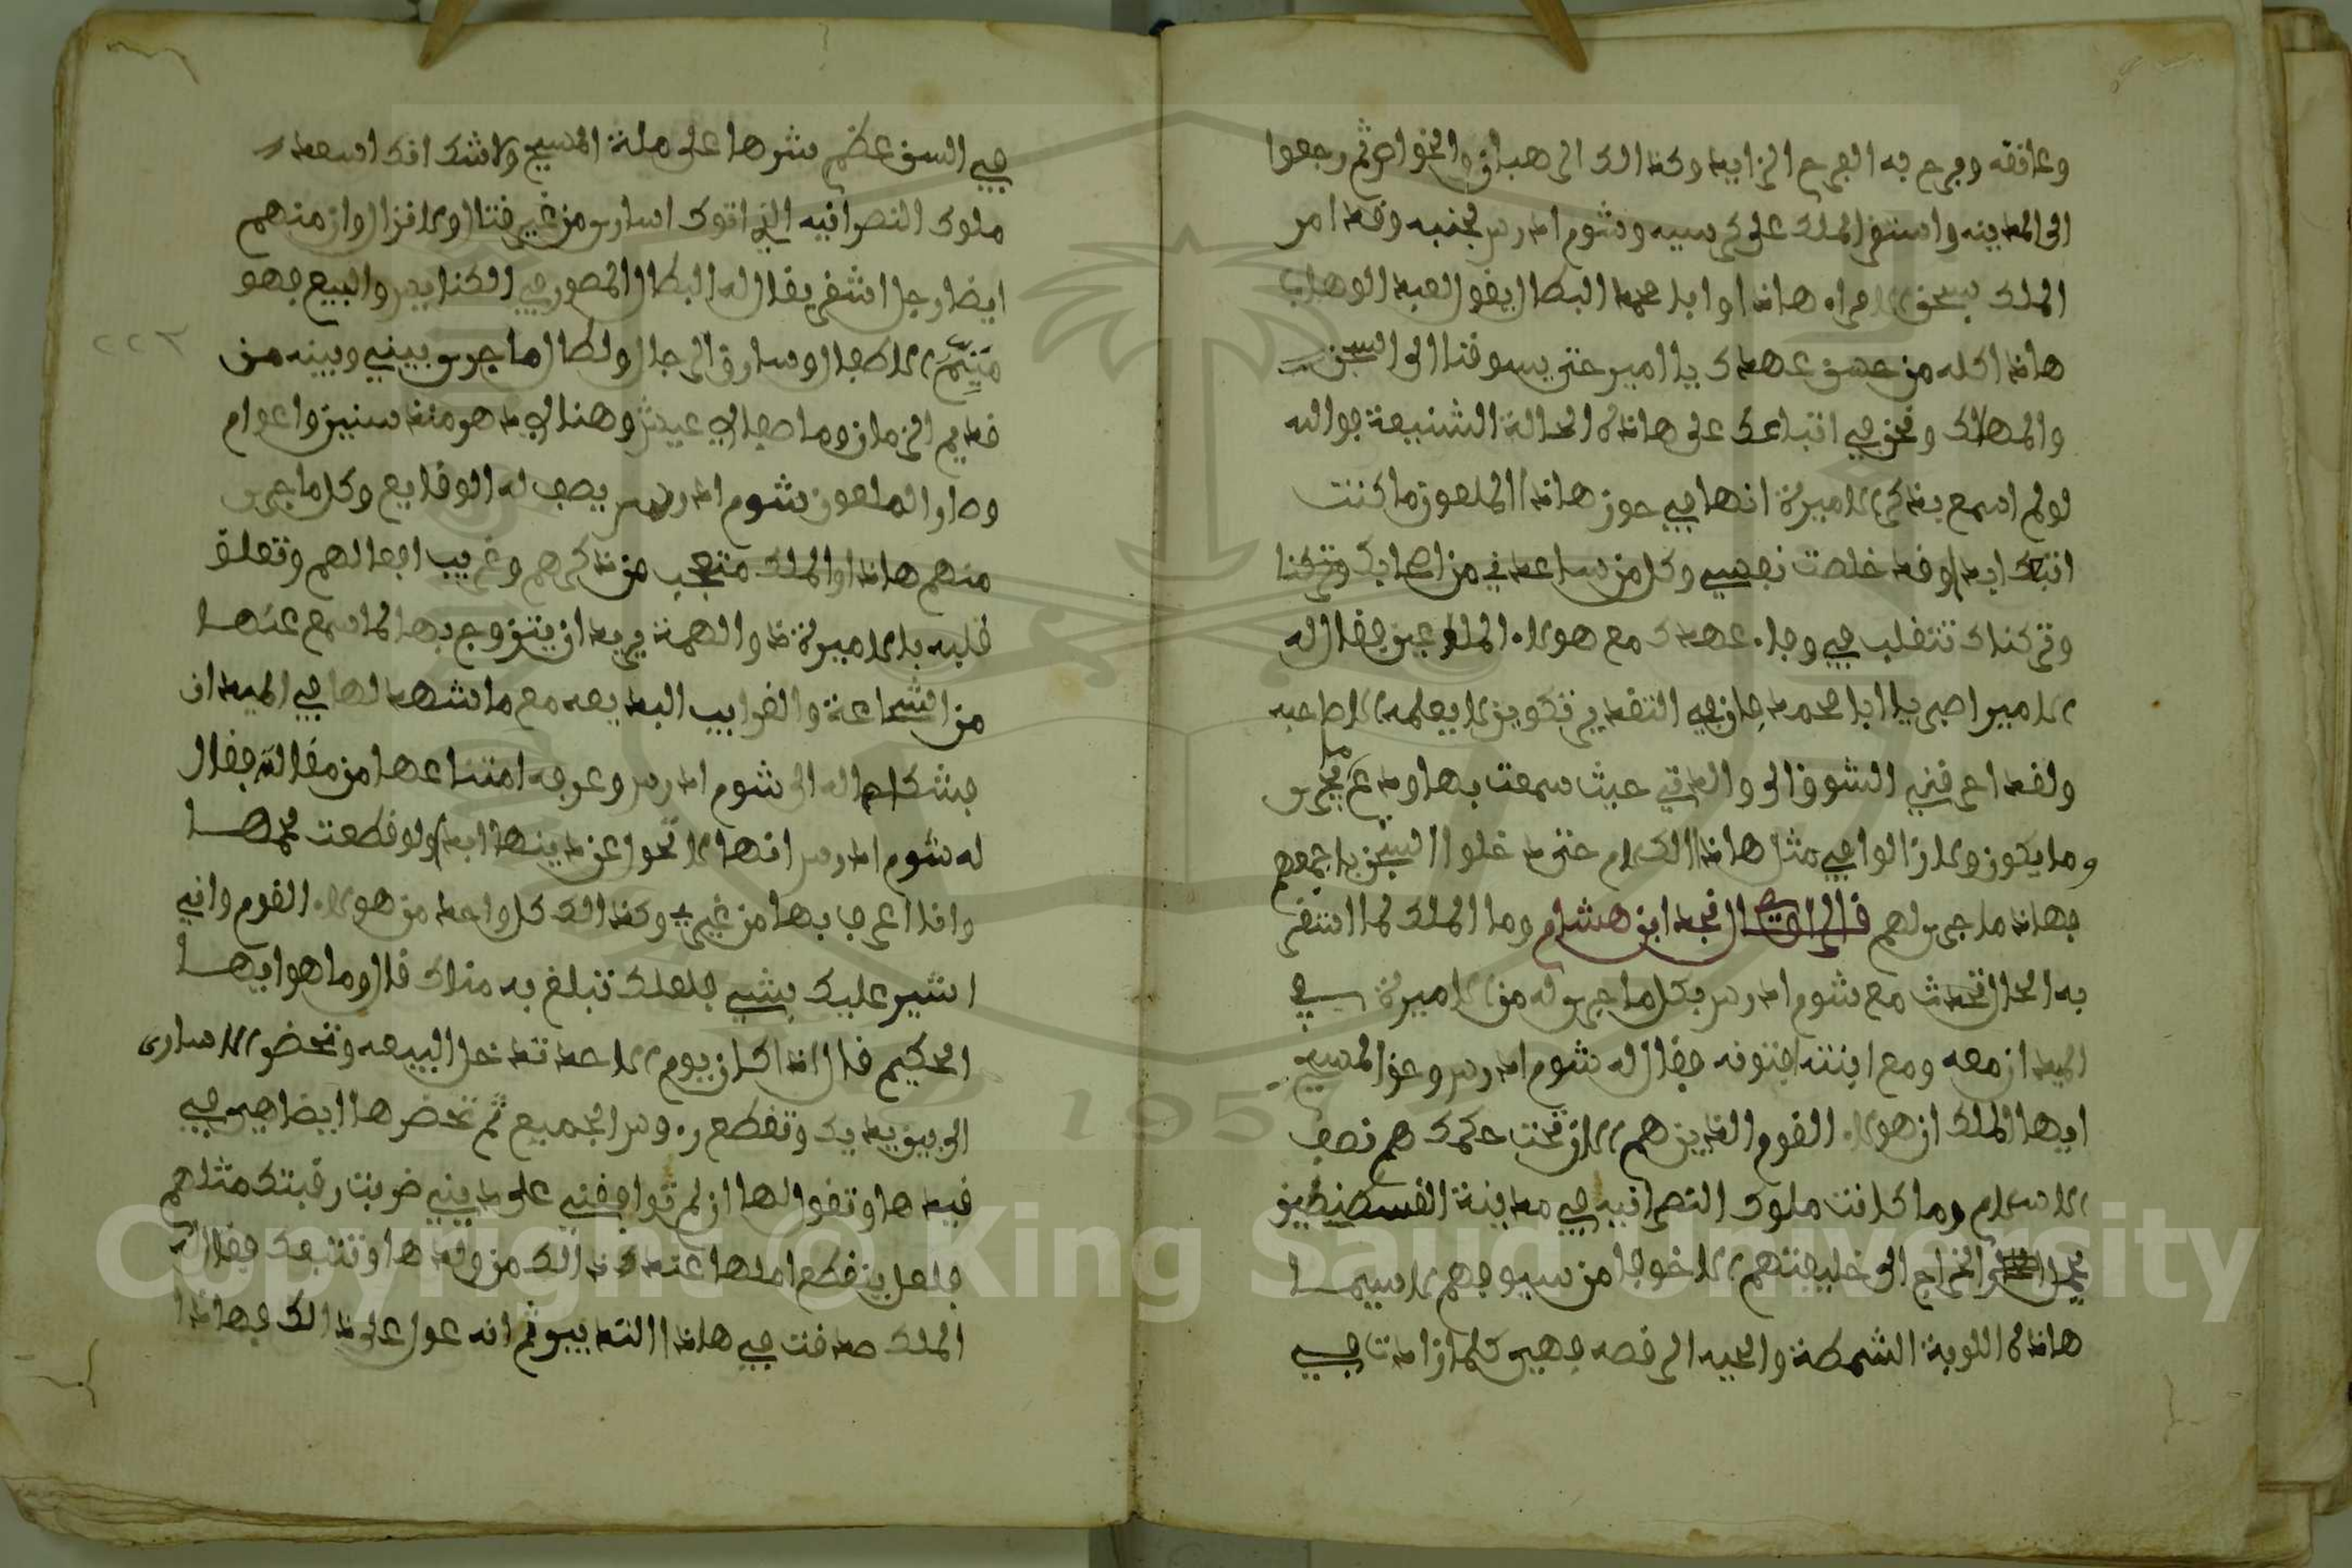 وعانقه وفرح به الفرح الزايد وكذالك الرهبان والخواص ثم رجعوا
الى المدينه واستقر الملك على كرسيه وشوم ادرس بجنبه وقد امر
الملك بسجن الامراء هاذا وابا محمد البطال يقول لعبد الوهاب
هاذا كله من عهدك يا امير حتى يسوقنا الى السجن
والمهلاك ونحن في اتباعك على هاذه الحالة الشنيعة فوالله
لو لم اسمع بذكر الاميرة انها في حوز هاذا الملعون ما كنت
اتبعك ابدا وقد خلصت نفسي وكل من ساعدني من اصحابك وتركنا
وتركناك تتقلب في وفاء عهدك مع هولاء الملاعين فقال له
الامير اصبر يا ابا محمد فان في التقدير تكوين لا يعلمه الا صاحبه
ولقد احرقني الشوق الى والدتي حيث سمعت بها ودع ما يجرى
وما يكون ولا زالوا في مثل هاذا الكلام حتى دخلوا السجن باجمعهم
فهاذا ما جرى لهم قال الراوي نجد ابن هشام وما الملك لما استقر
به الحال تحدث مع شوم ادرس بكل ما جرى له من الاميرة في
الميدان معه ومع ابنته افتونه فقال له شوم ادرس وحق المسيح
ايها الملك ان هولاء القوم الذين هم الان تحت حكمك هم نصف
الاسلام وما كانت ملوك النصرانيه في مدينة القسطنطين
الخراج الى خليفتهم الا خوفا من سيوفهم لاسيما
هاذه اللوبة الشمطة والحيه الرقصه فهي كلما زادت في
في السن عظم شرها على ملة المسيح ولا شك انك اسعد
ملوك النصرانيه الذي اتوك اسارى من غير قتال ولا نزال وان منهم
ايضا رجل اشقر يقال له البطال المصور في الكنايس والبيع فهو
ميتم الاطفال وسارق الرجال ولطال ما جرى بيني وبينه من
قديم الزمان وما صفا لي عيش وهنا لي الا هو منذ سنين واعوام
وصار الملعون شوم ادرس يصف له الوقايع وكل ما جرى
منهم هاذا والملك متعجب من ذكرهم وغريب افعالهم وتعلق
قلبه بالاميرة ذو الهمة يريد ان يتزوج بها لما سمع عنها
من الشجاعة والغرايب البديعه مع ما شهد لها في الميدان
فشكا حاله الى شوم ادرس وعرفه امتناعها من مقالته فقال
له شوم ادرس انها لا تحول عن دينها ابدا ولو قطعت لحمها
وانا اعرف بها من غيري وكذالك كل واحد من هولاء القوم واني
اشير عليك بشي فلعلك تبلغ به مناك قال وما هو ايها
الحكيم قال اذا كان يوم الاحد تدخل البيعه وتحضر الاسارى
الى بين يديك وتقطع روس الجميع ثم تحضرها ايضا هي في
قيدها وتقول لها ان لم توافقني على ديني ضربت رقبتك مثلهم
فلعل ينقطع املها عند ذالك من ولدها وتتبعك فقال له
الملك صدقت في هاذا التدبير ثم انه عول على ذالك فهاذا